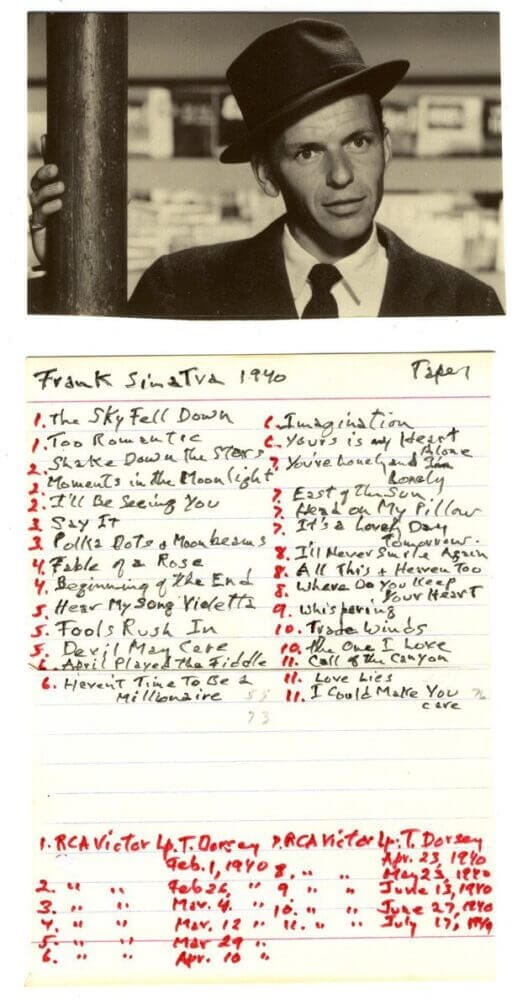 Frank Sinatra 1940 Tapes
1. The Sky Fell Down
1. Too Romantic
2. Shake Down the Stars
2. Moments in the Moonlight
2. I'll Be Seeing You
3 Say It
3. Polka Dots & Moonbeams
4. Fable of a Rose
4. Beginning of the End
5. Hear My Song Violetta
5. Fools Rush In
5. Devil May Care
6. April Played the Fiddle
6. Haven't Time To Be a
Millionaire 58
73
6. Imagination
6. Yours is my Heart
Alone
7. You're Lonely and I'm
Lonely
7. East of the Sun
7. Head on My Pillow
7. It's a Lovely Day
Tomorrow.
8. I'll Never Smile Again
8. All This & Heaven Too
8. Where Do You Keep
Your Heart
9. Whispering
10. Trade Winds
10. The One I Love
11. Call of the Canyon
11. Love Lies
11. I Could Make You
care
1. RCA Victor Lp. T. Dorsey
Feb. 1, 1940
2. " " Feb 26, "
3. " " Mar. 4. "
4. " " Mar. 12 "
5. " " Mar 29 "
6. " " Apr. 10 "
7. RCA Victor Lp. T. Dorsey
Apr. 23, 1940
8. " " May 23, 1940
9 " " June 13, 1940
10. " " June 27, 1940
11. " " July 17, 1940